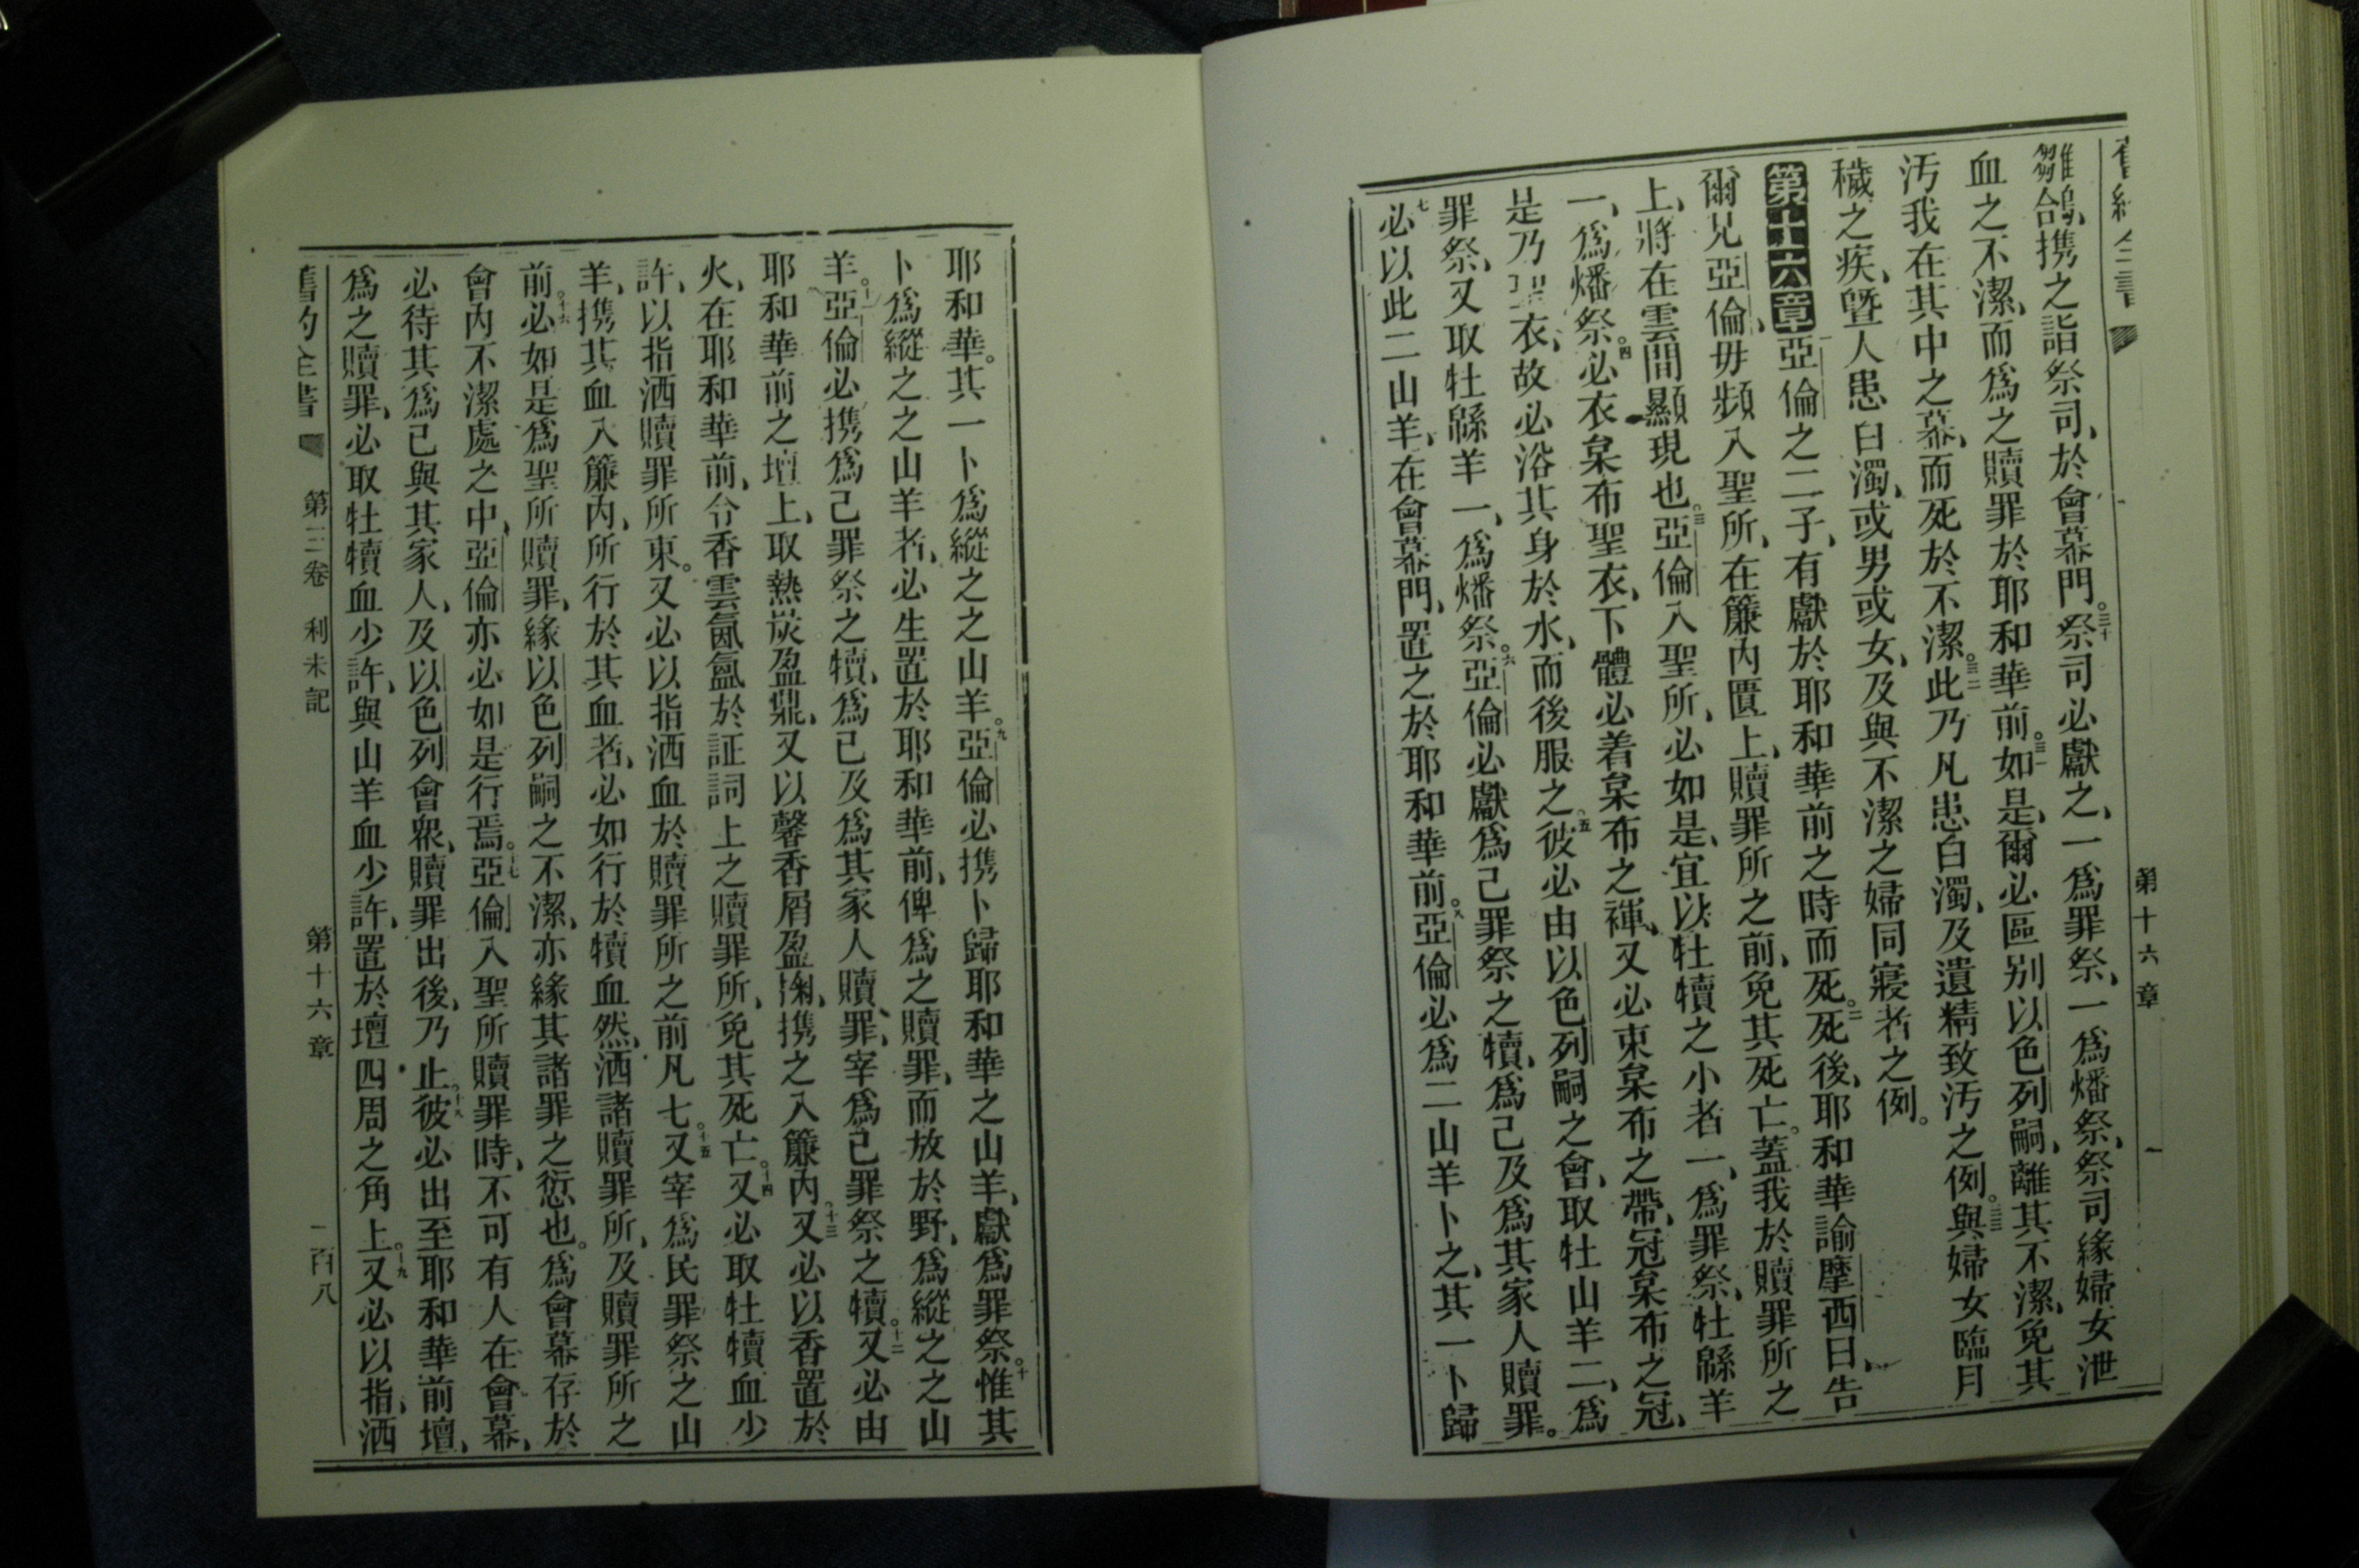 舊約全書 第十六章
雛鴿、携之詣祭司、於會幕門。三十祭司必獻之、一爲罪祭、一爲燔祭、祭司緣婦女泄
血之不潔、而爲之贖罪於耶和華前。三一如是、爾必區别以色列嗣、離其不潔、免其
汚我在其中之幕、而死於不潔。三二此乃凡患白濁、及遺精致汚之例。三三與婦女臨月
穢之疾、曁人患白濁、或男或女、及與不潔之婦同寢者之例。
第十六章 一亞倫之二子、有獻於耶和華前之時而死。二死後、耶和華諭摩西曰、告
爾兄亞倫、毋頻入聖所、在簾内匱上、贖罪所之前、免其死亡。蓋我於贖罪所之
上、將在雲間顯現也。三亞倫入聖所、必如是、宜以牡犢之小者一、爲罪祭、牡緜羊
一、爲燔祭。四必衣枲布聖衣、下體必着枲布之褌、又必束枲布之帶、冠枲布之冠、
是乃聖衣、故必浴其身於水、而後服之。五彼必由以色列嗣之會、取牡山羊二、爲
罪祭、又取牡緜羊一、爲燔祭。六亞倫必獻爲己罪祭之犢、爲己及爲其家人贖罪。
七必以此二山羊、在會幕門、置之於耶和華前。八亞倫必爲二山羊卜之、其一卜歸
耶和華。其一卜爲縱之之山羊。九亞倫必携卜歸耶和華之山羊、獻爲罪祭。十惟其
卜爲縱之之山羊者、必生置於耶和華前、俾爲之贖罪、而放於野、爲縱之之山
羊。十一亞倫必携爲己罪祭之犢、爲己及爲其家人贖罪、宰爲己罪祭之犢。十二又必由
耶和華前之壇上、取熱炭盈鼎、又以馨香屑盈掬、携之入簾内。十三又必以香置於
火、在耶和華前、令香雲氤氳於証詞上之贖罪所、免其死亡。十四又必取牡犢血少
許、以指洒贖罪所東。又必以指洒血於贖罪所之前凡七。十五又宰爲民罪祭之山
羊、携其血入簾内、所行於其血者、必如行於犢血然、洒諸贖罪所、及贖罪所之
前。十六必如是爲聖所贖罪、緣以色列嗣之不潔、亦緣其諸罪之愆也。爲會幕存於
會内不潔處之中、亞倫亦必如是行焉。十七亞倫入聖所贖罪時、不可有人在會幕、
必待其爲己與其家人、及以色列會衆、贖罪出後、乃止。十八彼必出至耶和華前壇、
爲之贖罪、必取牡犢血少許、與山羊血少許、置於壇四周之角上。十九又必以指、洒
舊約全書 第三卷 利未記 第十六章 一百八